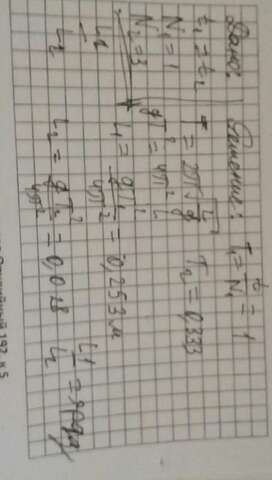 Дано:
t₁ = t₂
N₁ = 1
N₂ = 3
L₁ -
L₂
Решение: T₁ = t/N₁ = 1
T = 2π√(L/g) T₂ = 0,333
gT² = 4π² L
L₁ = gT₁²/4π² = 0,253 м
L₂ = gT₂²/4π² = 0,028 L₁/L₂ =